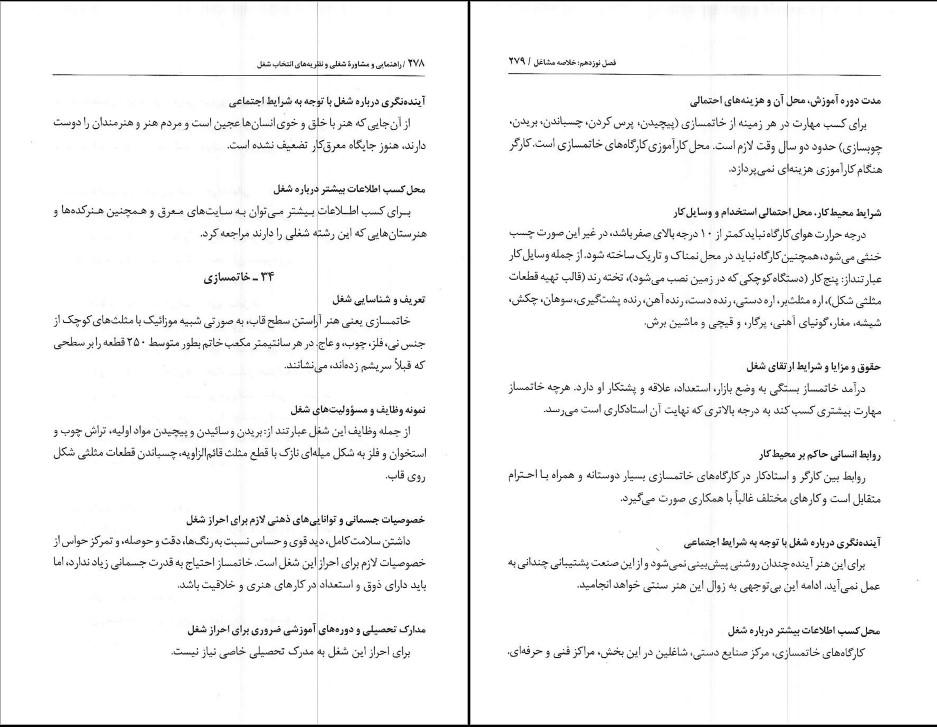 ۲۷۸ / راهنمایی و مشاورهٔ شغلی و نظریه‌های انتخاب شغل
آینده‌نگری درباره شغل با توجه به شرایط اجتماعی
از آن‌جایی که هنر با خلق و خوی انسان‌ها عجین است و مردم هنر و هنرمندان را دوست
دارند، هنوز جایگاه معرق‌کار تضعیف نشده است.
محل کسب اطلاعات بیشتر درباره شغل
برای کسب اطلاعات بیشتر می‌توان به سایت‌های معرق و همچنین هنرکده‌ها و
هنرستان‌هایی که این رشته شغلی را دارند مراجعه کرد.
۳۴ ـ خاتمسازی
تعریف و شناسایی شغل
خاتمسازی یعنی هنر آراستن سطح قاب، به صورتی شبیه موزائیک با مثلث‌های کوچک از
جنس نی، فلز، چوب، و عاج. در هر سانتیمتر مکعب خاتم بطور متوسط ۲۵۰ قطعه را بر سطحی
که قبلاً سریشم زده‌اند، می‌نشانند.
نمونه وظایف و مسؤولیت‌های شغل
از جمله وظایف این شغل عبارتند از: بریدن و سائیدن و پیچیدن مواد اولیه، تراش چوب و
استخوان و فلز به شکل میله‌ای نازک با قطع مثلث قائم‌الزاویه، چسباندن قطعات مثلثی شکل
روی قاب.
خصوصیات جسمانی و توانایی‌های ذهنی لازم برای احراز شغل
داشتن سلامت کامل، دید قوی و حساس نسبت به رنگ‌ها، دقت و حوصله، و تمرکز حواس از
خصوصیات لازم برای احراز این شغل است. خاتمساز احتیاج به قدرت جسمانی زیاد ندارد، اما
باید دارای ذوق و استعداد در کارهای هنری و خلاقیت باشد.
مدارک تحصیلی و دوره‌های آموزشی ضروری برای احراز شغل
برای احراز این شغل به مدرک تحصیلی خاصی نیاز نیست.
فصل نوزدهم: خلاصه مشاغل / ۲۷۹
مدت دوره آموزش، محل آن و هزینه‌های احتمالی
برای کسب مهارت در هر زمینه از خاتمسازی (پیچیدن، پرس کردن، چسباندن، بریدن،
چوبسازی) حدود دو سال وقت لازم است. محل کارآموزی کارگاه‌های خاتمسازی است. کارگر
هنگام کارآموزی هزینه‌ای نمی‌پردازد.
شرایط محیط کار، محل احتمالی استخدام و وسایل کار
درجه حرارت هوای کارگاه نباید کمتر از ۱۰ درجه بالای صفر باشد، در غیر این صورت چسب
خنثی می‌شود، همچنین کارگاه نباید در محل نمناک و تاریک ساخته شود. از جمله وسایل کار
عبارتنداز: پنج کار (دستگاه کوچکی که در زمین نصب می‌شود)، تخته رند (قالب تهیه قطعات
مثلثی شکل)، اره مثلث‌بر، اره دستی، رنده دست، رنده آهن، رنده پشت‌گیری، سوهان، چکش،
شیشه، مغار، گونیای آهنی، پرگار، و قیچی و ماشین برش.
حقوق و مزایا و شرایط ارتقای شغل
درآمد خاتمساز بستگی به وضع بازار، استعداد، علاقه و پشتکار او دارد. هرچه خاتمساز
مهارت بیشتری کسب کند به درجه بالاتری که نهایت آن استادکاری است می‌رسد.
روابط انسانی حاکم بر محیط کار
روابط بین کارگر و استادکار در کارگاه‌های خاتمسازی بسیار دوستانه و همراه با احترام
متقابل است و کارهای مختلف غالباً با همکاری صورت می‌گیرد.
آینده‌نگری درباره شغل با توجه به شرایط اجتماعی
برای این هنر آینده چندان روشنی پیش‌بینی نمی‌شود و از این صنعت پشتیبانی چندانی به
عمل نمی‌آید. ادامه این بی‌توجهی به زوال این هنر سنتی خواهد انجامید.
محل کسب اطلاعات بیشتر درباره شغل
کارگاه‌های خاتمسازی، مرکز صنایع دستی، شاغلین در این بخش، مراکز فنی و حرفه‌ای.